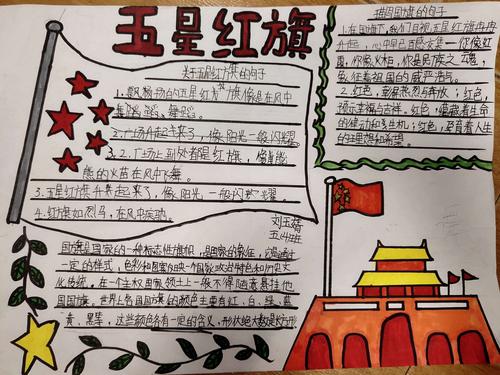 五星红旗
关于五星红旗的句子
1.飘扬的五星红旗像是在风中
舞蹈、舞蹈。
2.广场升起来了,像阳光一般闪耀。
3.2.广场上到处都是红旗,像
熊的火苗在风中飞舞。
3.五星红旗升起来了,像阳光一般闪耀。
4.红旗如烈马,在风中奔驰。
刘玉
五
描写国旗的句子
1.在国旗下,我们目视五星红旗冉冉
升起,心中早已感慨交集——你像红
霞,你像火焰,你是民族之魂,
象征着祖国的威严
2.红色,彭湃热烈与奔放;红色,
预示幸福与吉祥。红色,蕴藏着生命
的健动和主生机;红色,孕育着人生
的理想和希望。
国旗是国家的一种标志性旗帜,是国家的象征,它通过
一定的样式,色彩和图案反映一个国家政治特色和历史文
化传统。在一个主权国家领土上一般不得随意悬挂他
国国旗。世界上各国国旗的颜色主要有红、白、绿、蓝
黄、黑等,这些颜色各有一定的含义,形状绝大数是长方形